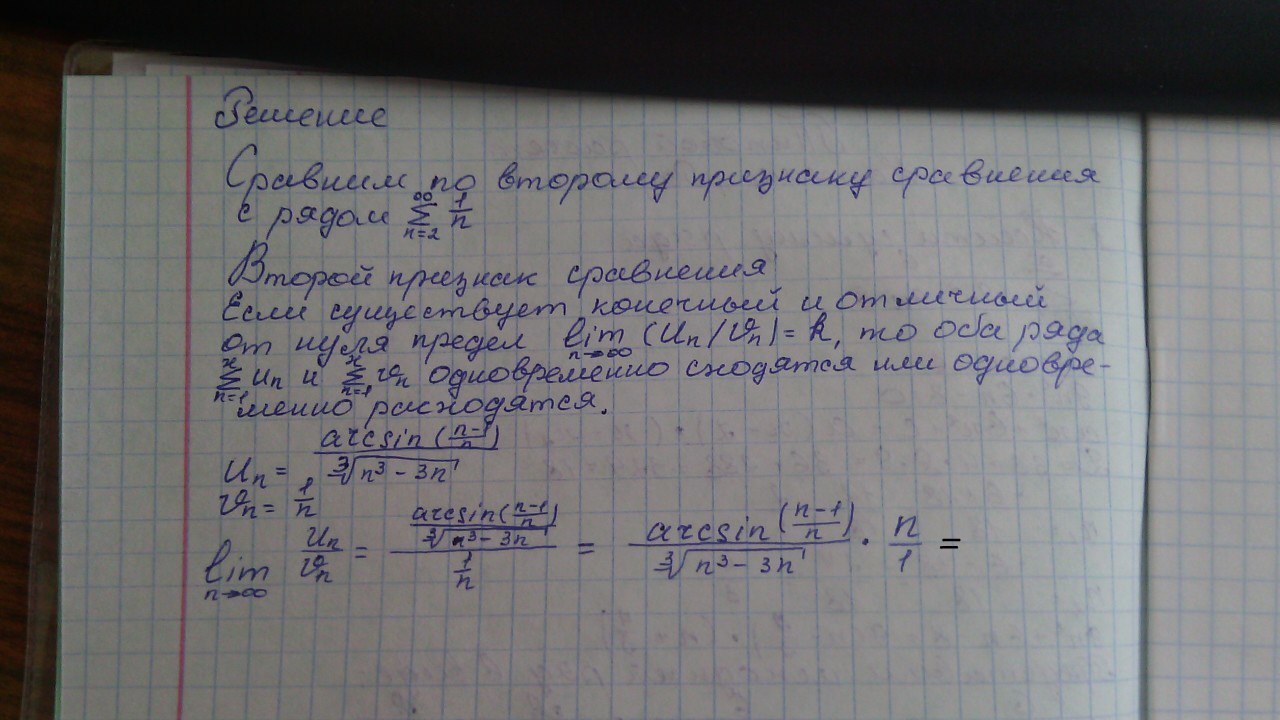 Решение
Сравним по второму признаку сравнения
с рядом \sum_{n=2}^{\infty} \frac{1}{n}
Второй признак сравнения
Если существует конечный и отличный
от нуля предел \lim_{n→∞} (u_n/v_n) = k, то оба ряда
\sum_{n=1}^{∞} u_n и \sum_{n=1}^{∞} v_n одновременно сходятся или одновре-
менно расходятся.
u_n = \frac{arcsin(\frac{n-1}{n})}{\sqrt[3]{n^3 - 3n}}
v_n = \frac{1}{n}
\lim_{n→∞} \frac{u_n}{v_n} = \frac{\frac{arcsin(\frac{n-1}{n})}{\sqrt[3]{n^3 - 3n}}}{\frac{1}{n}} = \frac{arcsin(\frac{n-1}{n})}{\sqrt[3]{n^3 - 3n}} · \frac{n}{1} =